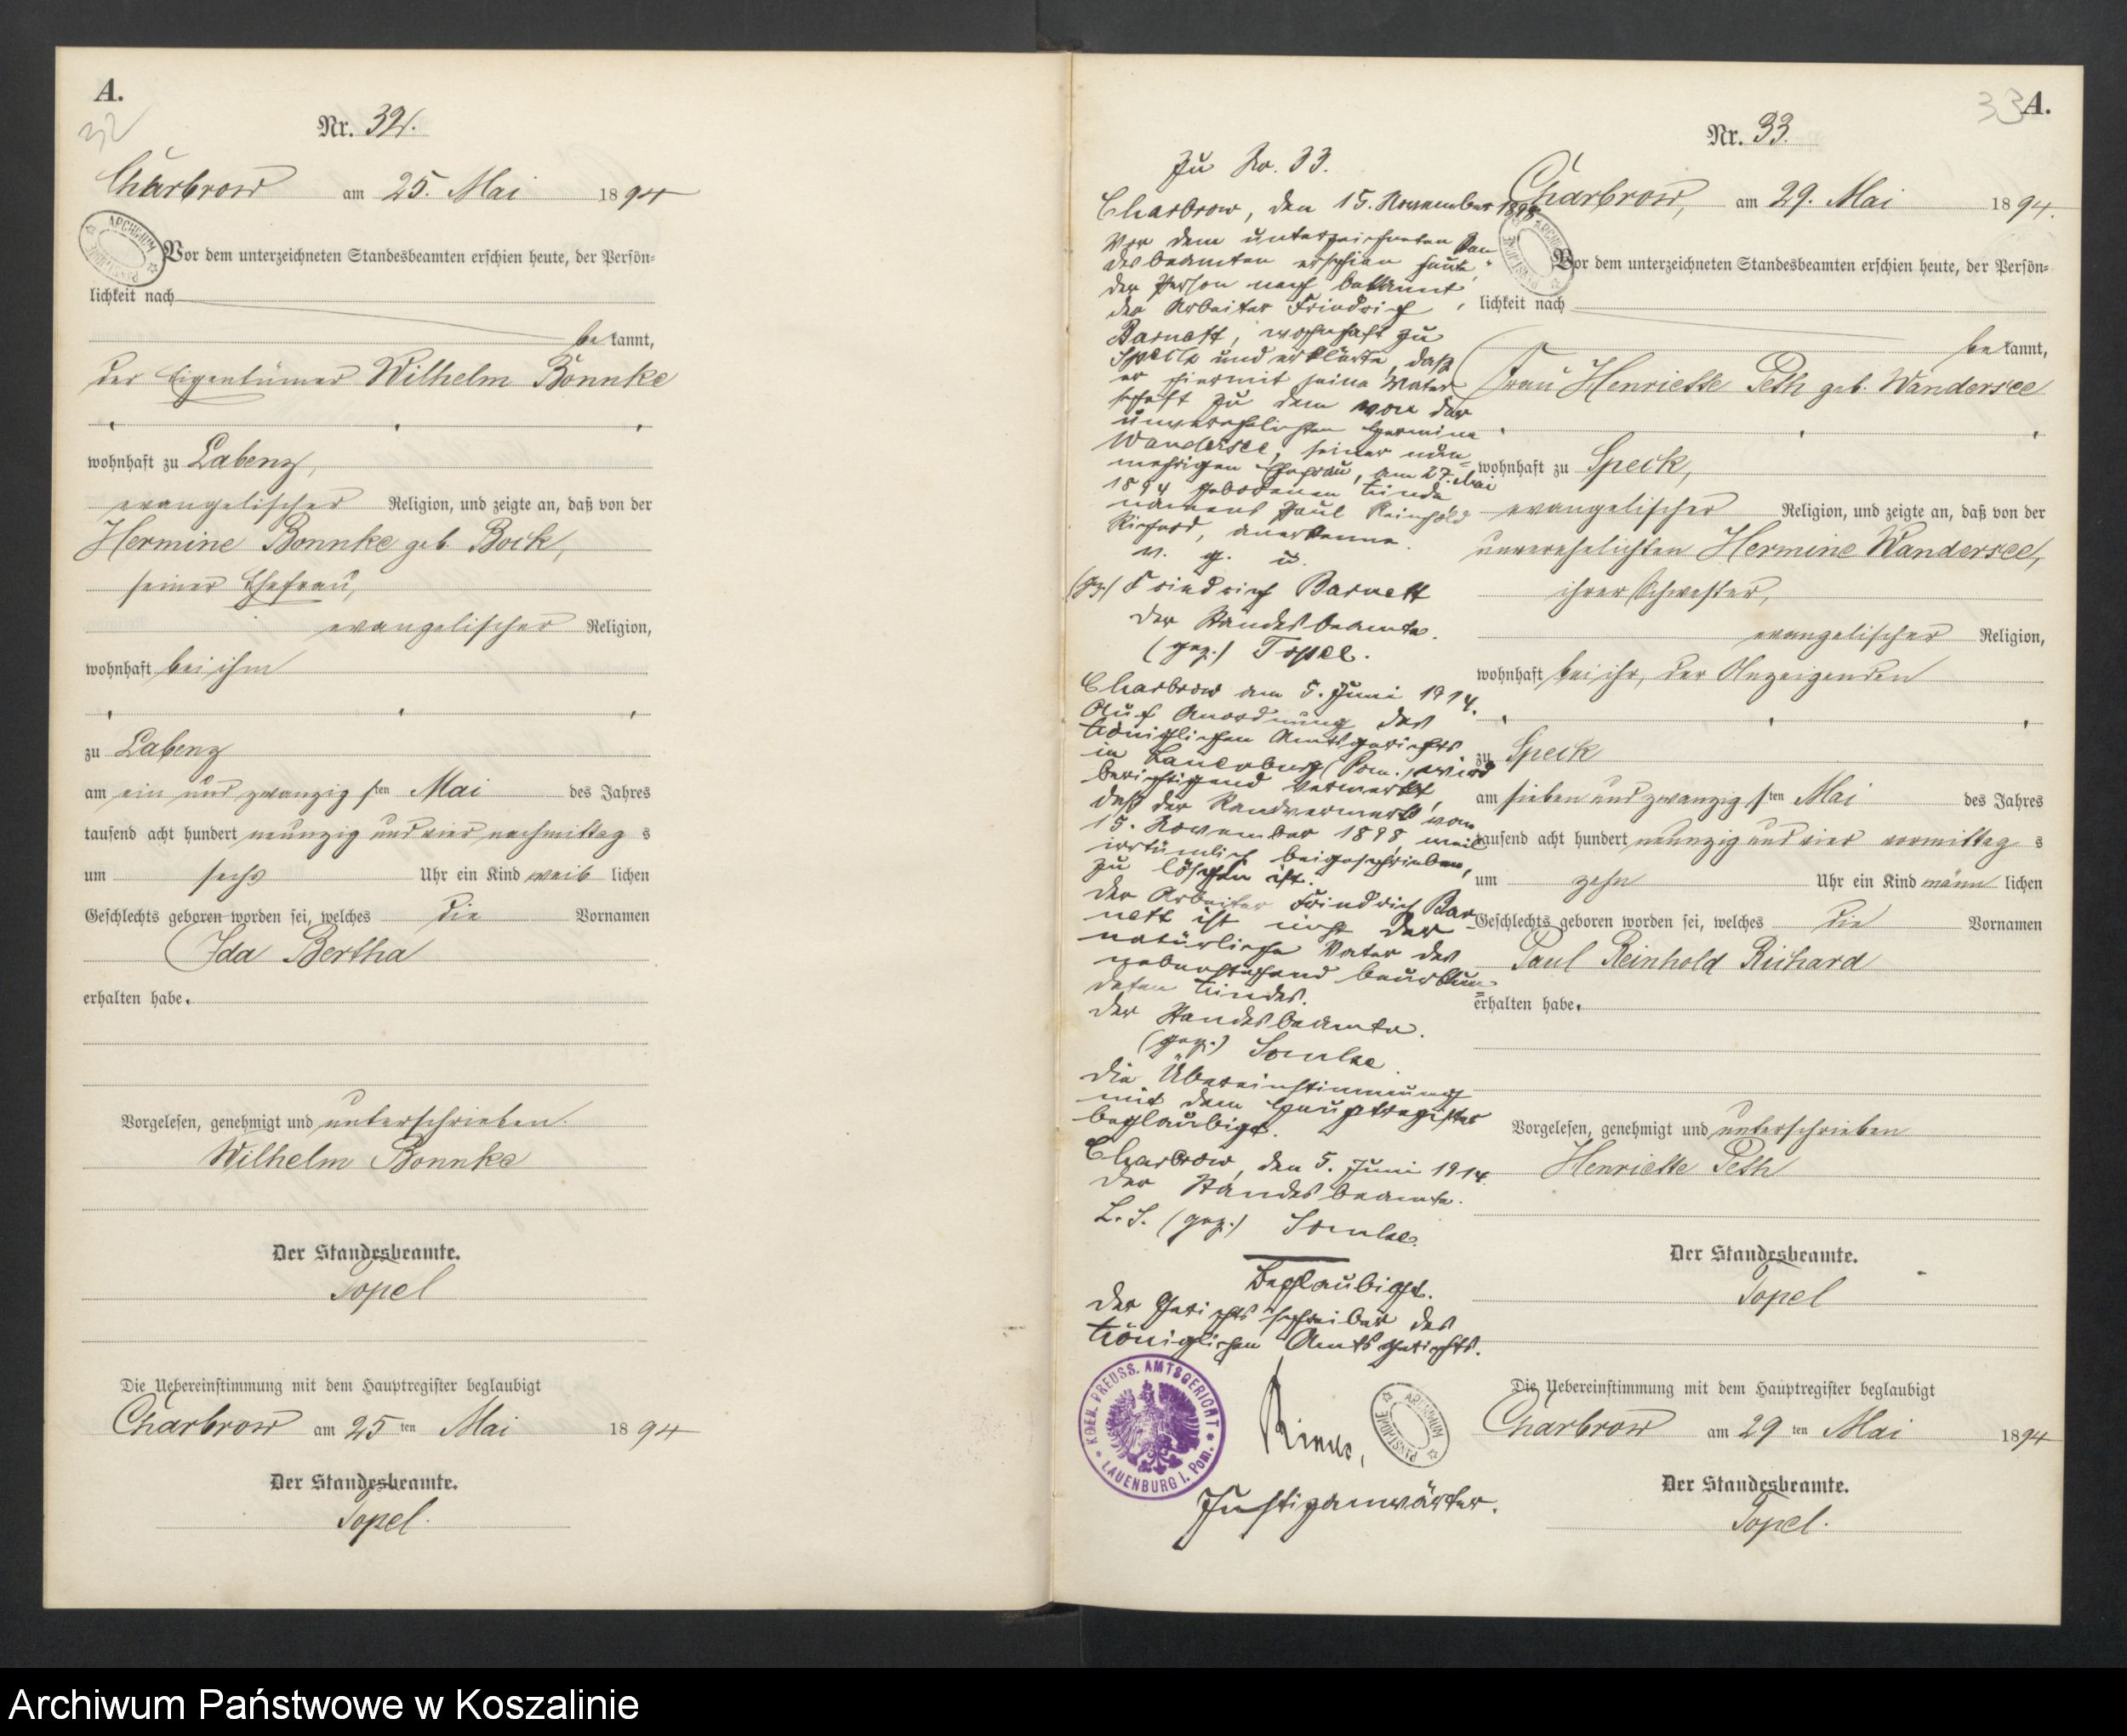 A.
32
Nr. 32.
Charbrow am 25. Mai 1894
ARCHIWUM PAŃSTWOWE
Vor dem unterzeichneten Standesbeamten erschien heute, der Persön-
lichkeit nach
be kannt,
der Eigentümer Wilhelm Bonnke
wohnhaft zu Labenz,
evangelischer Religion, und zeigte an, daß von der
Hermine Bonnke geb. Bock,
seiner Ehefrau,
evangelischer Religion,
wohnhaft bei ihm
zu Labenz
am ein und zwanzig sten Mai des Jahres
tausend acht hundert neunzig und vier nachmittag s
um sechs Uhr ein Kind weib lichen
Geschlechts geboren worden sei, welches die Vornamen
Ida Bertha
erhalten habe.
Vorgelesen, genehmigt und unterschrieben.
Wilhelm Bonnke
Der Standesbeamte.
Topel
Die Uebereinstimmung mit dem Hauptregister beglaubigt
Charbrow am 25 ten Mai 1894
Der Standesbeamte.
Topel.
Zu No. 33.
Charbrow, den 15. November 1898
Vor dem unterzeichneten Stan-
desbeamten erschien heute,
der Person nach bekannt,
der Arbeiter Friedrich
Barnett, wohnhaft zu
Speck und erklärte, daß
er hiermit seine Vater
schaft zu dem von der
unverehelichten Hermine
Wandersee, seiner nun-
mehrigen Ehefrau, am 27. Mai
1894 geborenen Kinde
namens Paul Reinhold
Richard, anerkenne.
v. g. u.
(gez.) Friedrich Barnett
Der Standesbeamte.
(gez.) Topel.
Charbrow am 5. Juni 1914.
Auf Anordnung des
Königlichen Amtsgerichts
in Lauenburg (Pom.) wird
berichtigend vermerkt,
daß der Randvermerk vom
15. November 1898, weil
irrtümlich beigeschrieben,
zu löschen ist.
Der Arbeiter Friedrich Bar-
nett ist nicht der
natürliche Vater des
nebenstehend beurkun-
deten Kindes.
Der Standesbeamte.
(gez.)
Die Übereinstimmung
mit dem Hauptregister
beglaubigt.
Charbrow, den 5. Juni 1914.
Der Standesbeamte.
L. S. (gez.)
Beglaubigt.
Der Gerichtsschreiber des
Königlichen Amtsgerichts.
KOEN. PREUSS. AMTSGERICHT * LAUENBURG i. Pom. *
ARCHIWUM PAŃSTWOWE
Justizanwärter.
33 A.
Nr. 33.
Charbrow, am 29. Mai 1894.
ARCHIWUM PAŃSTWOWE
Vor dem unterzeichneten Standesbeamten erschien heute, der Persön-
lichkeit nach
be kannt,
Frau Henriette Peth geb. Wandersee
wohnhaft zu Speck,
evangelischer Religion, und zeigte an, daß von der
unverehelichten Hermine Wandersee,
ihrer Schwester,
evangelischer Religion,
wohnhaft bei ihr, der Anzeigenden
zu Speck
am sieben und zwanzig sten Mai des Jahres
tausend acht hundert neunzig und vier vormittag s
um zehn Uhr ein Kind männ lichen
Geschlechts geboren worden sei, welches die Vornamen
Paul Reinhold Richard
erhalten habe.
Vorgelesen, genehmigt und unterschrieben
Henriette Peth
Der Standesbeamte.
Topel
Die Uebereinstimmung mit dem Hauptregister beglaubigt
Charbrow am 29 ten Mai 1894
Der Standesbeamte.
Topel.
Archiwum Państwowe w Koszalinie